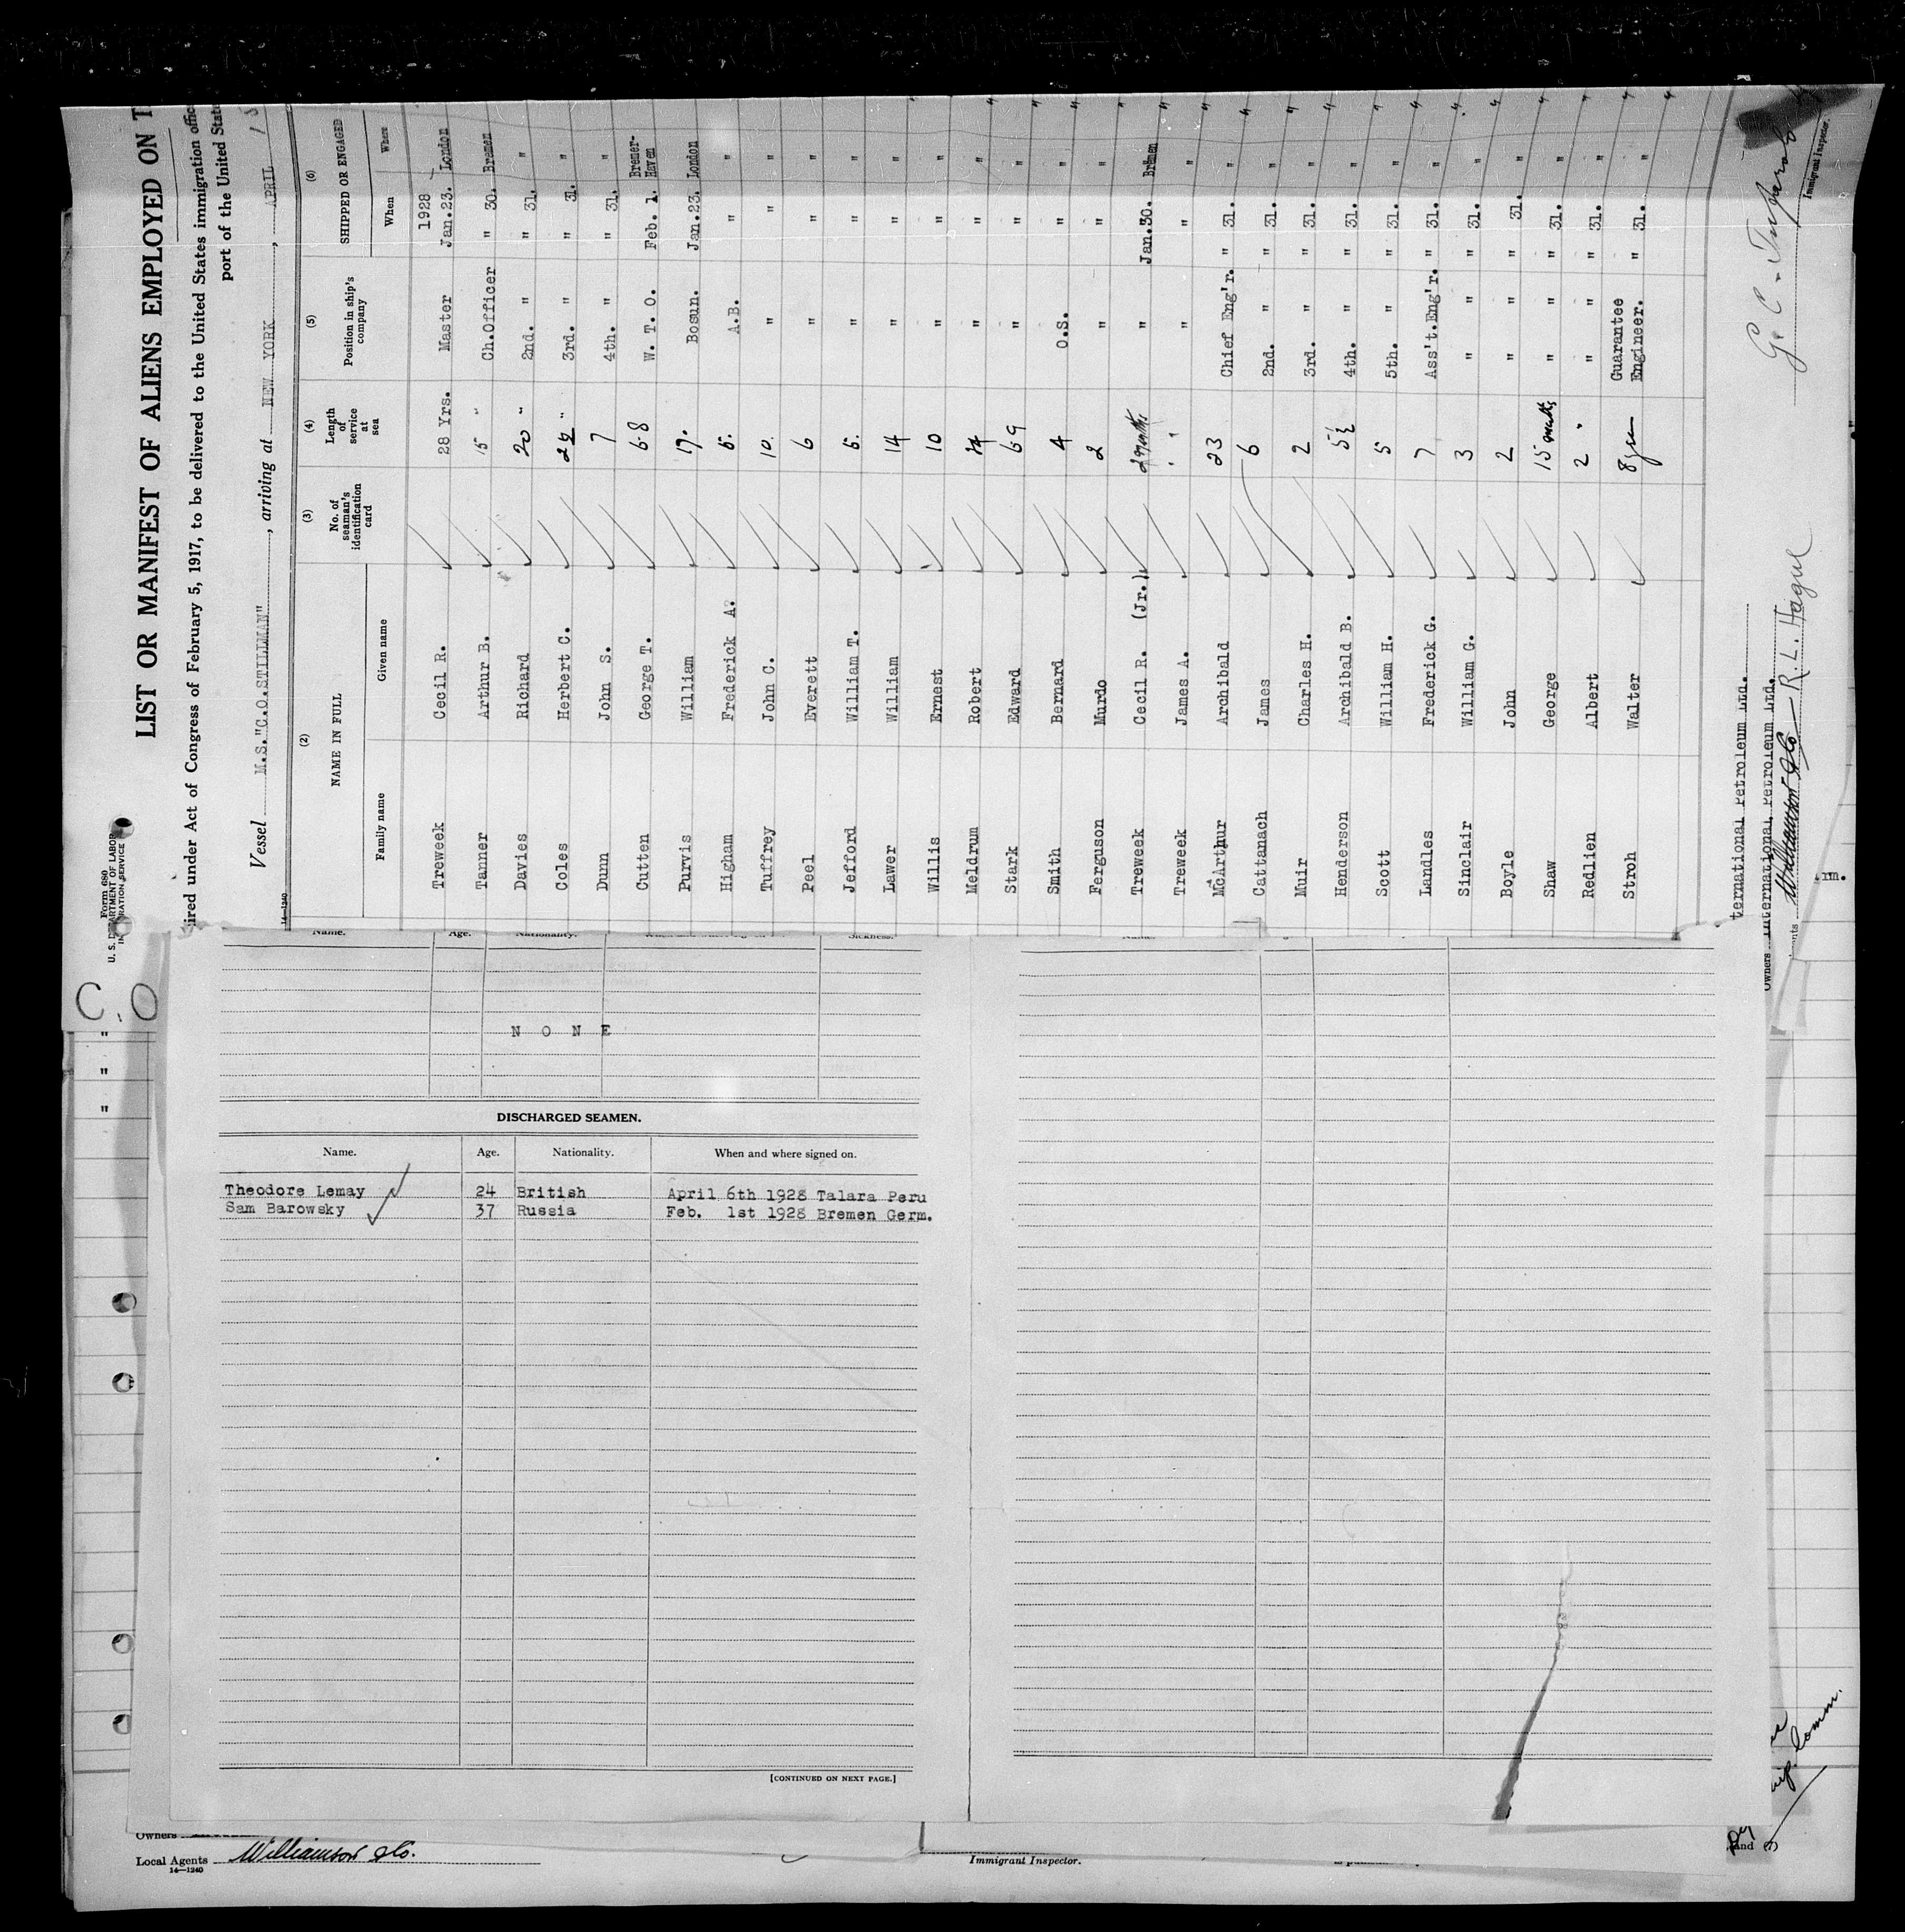 Form 680
U. S. DEPARTMENT OF LABOR
IMMIGRATION SERVICE
LIST OR MANIFEST OF ALIENS EMPLOYED ON T
ired under Act of Congress of February 5, 1917, to be delivered to the United States immigration offic
port of the United Stat
Vessel M.S."C.O.STILLMAN", arriving at NEW YORK, APRIL
14—1240
(2) (3) (4) (5) (6)
NAME IN FULL No. of seaman's identification card Length of service at sea Position in ship's company SHIPPED OR ENGAGED
Family name Given name When Where
1928
Treweek Cecil R. 28 Yrs. Master Jan.23. London
Tanner Arthur B. 15 " Ch.Officer " 30. Bremen
Davies Richard 20 " 2nd. " " 31. "
Coles Herbert C. " 3rd. " " 31. "
Dunn John S. 7 4th. " " 31. "
Cutten George T. 6.8 W. T. O. Feb. 1. Bremer-Haven
Purvis William 17. Bosun. Jan.23. London
Higham Frederick A. 5. A.B. " "
Tuffrey John C. 10. " " "
Peel Everett 6 " " "
Jefford William T. 5. " " "
Lawer William 14 " " "
Willis Ernest 10 " " "
Meldrum Robert " " "
Stark Edward 6.9 " " "
Smith Bernard 4 O.S. " "
Ferguson Murdo 2 " " "
Treweek Cecil R. (Jr.) 2 months " Jan.30. Bremen
Treweek James A. " " " "
McArthur Archibald 23 Chief Eng'r. " 31. "
Cattanach James 6 2nd. " " 31. "
Muir Charles H. 2 3rd. " " 31. "
Henderson Archibald B. 5½ 4th. " " 31. "
Scott William H. 5 5th. " " 31. "
Landles Frederick G. 7 Ass't.Eng'r. " 31. "
Sinclair William G. 3 " " " 31. "
Boyle John 2 " " " 31. "
Shaw George 15 months " " " 31. "
Redlien Albert 2 " " " " 31. "
Stroh Walter 8 years Guarantee Engineer. " 31. "
ternational Petroleum Ltd.
Owners International Petroleum Ltd.
Williamson & Co R. L. Hague
Immigrant Inspector.
C. O
Name. Age. Nationality. Sickness.
N O N E
DISCHARGED SEAMEN.
Name. Age. Nationality. When and where signed on.
Theodore Lemay 24 British April 6th 1928 Talara Peru
Sam Barowsky 37 Russia Feb. 1st 1928 Bremen Germ.
[CONTINUED ON NEXT PAGE.]
Owners
Local Agents Williamson & Co.
14—1240
Immigrant Inspector.
and (7)